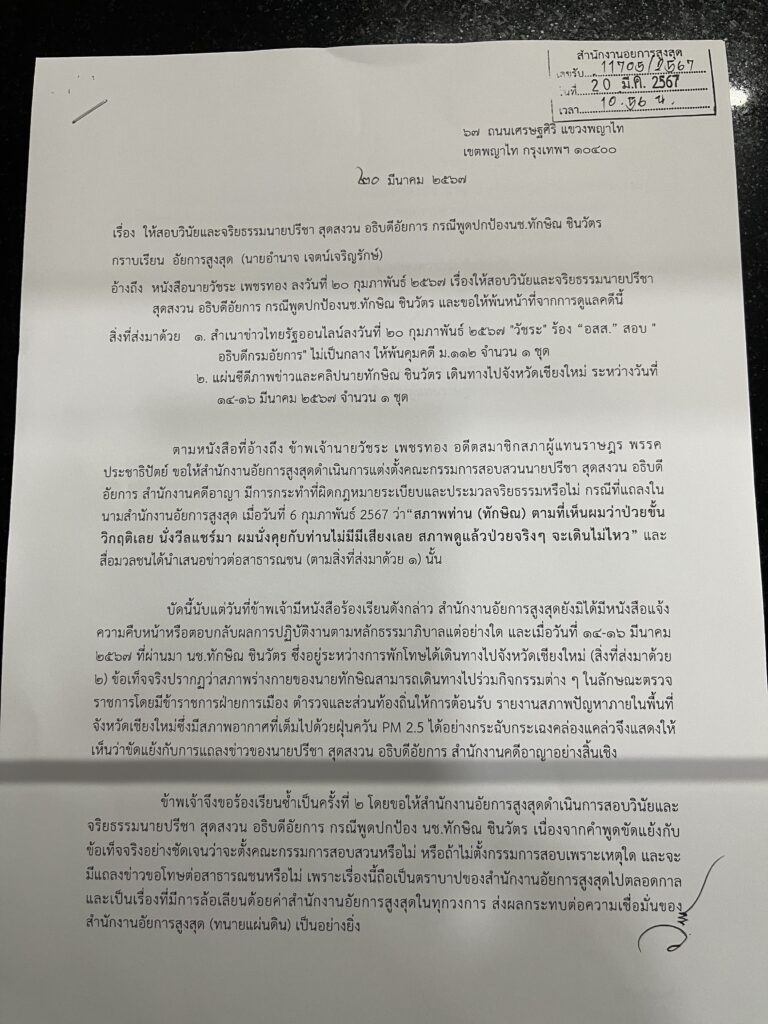 สำนักงานอัยการสูงสุด
เลขรับ....11705/2567
วันที่....20 มี.ค. 2567
เวลา....10.56 น.
๖๗ ถนนเศรษฐศิริ แขวงพญาไท
เขตพญาไท กรุงเทพฯ ๑๐๔๐๐
๒๐ มีนาคม ๒๕๖๗
เรื่อง ให้สอบวินัยและจริยธรรมนายปรีชา สุดสงวน อธิบดีอัยการ กรณีพูดปกป้องนช.ทักษิณ ชินวัตร
กราบเรียน อัยการสูงสุด (นายอำนาจ เจตน์เจริญรักษ์)
อ้างถึง หนังสือนายวัชระ เพชรทอง ลงวันที่ ๒๐ กุมภาพันธ์ ๒๕๖๗ เรื่องให้สอบวินัยและจริยธรรมนายปรีชา
สุดสงวน อธิบดีอัยการ กรณีพูดปกป้องนช.ทักษิณ ชินวัตร และขอให้พ้นหน้าที่จากการดูแลคดีนี้
สิ่งที่ส่งมาด้วย ๑. สำเนาข่าวไทยรัฐออนไลน์ลงวันที่ ๒๐ กุมภาพันธ์ ๒๕๖๗ "วัชระ" ร้อง "อสส." สอบ "
อธิบดีกรมอัยการ" ไม่เป็นกลาง ให้พ้นคุมคดี ม.๑๑๒ จำนวน ๑ ชุด
๒. แผ่นซีดีภาพข่าวและคลิปนายทักษิณ ชินวัตร เดินทางไปจังหวัดเชียงใหม่ ระหว่างวันที่
๑๔-๑๖ มีนาคม ๒๕๖๗ จำนวน ๑ ชุด
ตามหนังสือที่อ้างถึง ข้าพเจ้านายวัชระ เพชรทอง อดีตสมาชิกสภาผู้แทนราษฎร พรรค
ประชาธิปัตย์ ขอให้สำนักงานอัยการสูงสุดดำเนินการแต่งตั้งคณะกรรมการสอบสวนนายปรีชา สุดสงวน อธิบดี
อัยการ สำนักงานคดีอาญา มีการกระทำที่ผิดกฎหมายระเบียบและประมวลจริยธรรมหรือไม่ กรณีที่แถลงใน
นามสำนักงานอัยการสูงสุด เมื่อวันที่ 6 กุมภาพันธ์ 2567 ว่า"สภาพท่าน (ทักษิณ) ตามที่เห็นผมว่าป่วยขั้น
วิกฤติเลย นั่งวีลแชร์มา ผมนั่งคุยกับท่านไม่มีมีเสียงเลย สภาพดูแล้วป่วยจริงๆ จะเดินไม่ไหว" และ
สื่อมวลชนได้นำเสนอข่าวต่อสาธารณชน (ตามสิ่งที่ส่งมาด้วย ๑) นั้น
บัดนี้นับแต่วันที่ข้าพเจ้ามีหนังสือร้องเรียนดังกล่าว สำนักงานอัยการสูงสุดยังมิได้มีหนังสือแจ้ง
ความคืบหน้าหรือตอบกลับผลการปฏิบัติงานตามหลักธรรมาภิบาลแต่อย่างใด และเมื่อวันที่ ๑๔-๑๖ มีนาคม
๒๕๖๗ ที่ผ่านมา นช.ทักษิณ ชินวัตร ซึ่งอยู่ระหว่างการพักโทษได้เดินทางไปจังหวัดเชียงใหม่ (สิ่งที่ส่งมาด้วย
๒) ข้อเท็จจริงปรากฏว่าสภาพร่างกายของนายทักษิณสามารถเดินทางไปร่วมกิจกรรมต่าง ๆ ในลักษณะตรวจ
ราชการโดยมีข้าราชการฝ่ายการเมือง ตำรวจและส่วนท้องถิ่นให้การต้อนรับ รายงานสภาพปัญหาภายในพื้นที่
จังหวัดเชียงใหม่ซึ่งมีสภาพอากาศที่เต็มไปด้วยฝุ่นควัน PM 2.5 ได้อย่างกระฉับกระเฉงคล่องแคล่วจึงแสดงให้
เห็นว่าขัดแย้งกับการแถลงข่าวของนายปรีชา สุดสงวน อธิบดีอัยการ สำนักงานคดีอาญาอย่างสิ้นเชิง
ข้าพเจ้าจึงขอร้องเรียนซ้ำเป็นครั้งที่ ๒ โดยขอให้สำนักงานอัยการสูงสุดดำเนินการสอบวินัยและ
จริยธรรมนายปรีชา สุดสงวน อธิบดีอัยการ กรณีพูดปกป้อง นช.ทักษิณ ชินวัตร เนื่องจากคำพูดขัดแย้งกับ
ข้อเท็จจริงอย่างชัดเจนว่าจะตั้งคณะกรรมการสอบสวนหรือไม่ หรือถ้าไม่ตั้งกรรมการสอบเพราะเหตุใด และจะ
มีแถลงข่าวขอโทษต่อสาธารณชนหรือไม่ เพราะเรื่องนี้ถือเป็นตราบาปของสำนักงานอัยการสูงสุดไปตลอดกาล
และเป็นเรื่องที่มีการล้อเลียนด้อยค่าสำนักงานอัยการสูงสุดในทุกวงการ ส่งผลกระทบต่อความเชื่อมั่นของ
สำนักงานอัยการสูงสุด (ทนายแผ่นดิน) เป็นอย่างยิ่ง